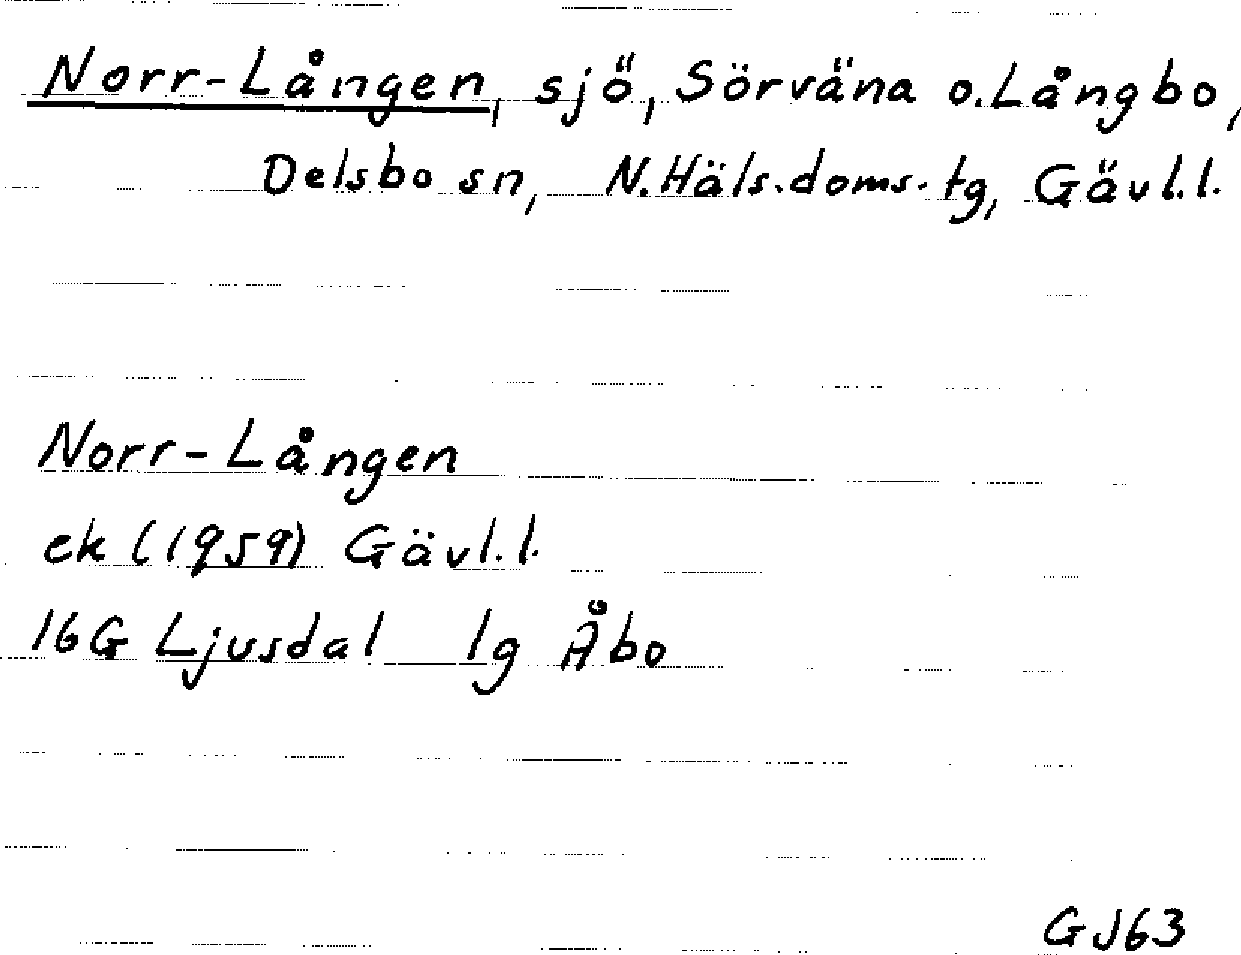 Norr-Lången, sjö, Sörväna o. Långbo,
Delsbo sn, N. Häls. doms. tg, Gävl. l.
Norr-Lången
ek (1959) Gävl. l.
16G Ljusdal 1g Åbo
GJ63